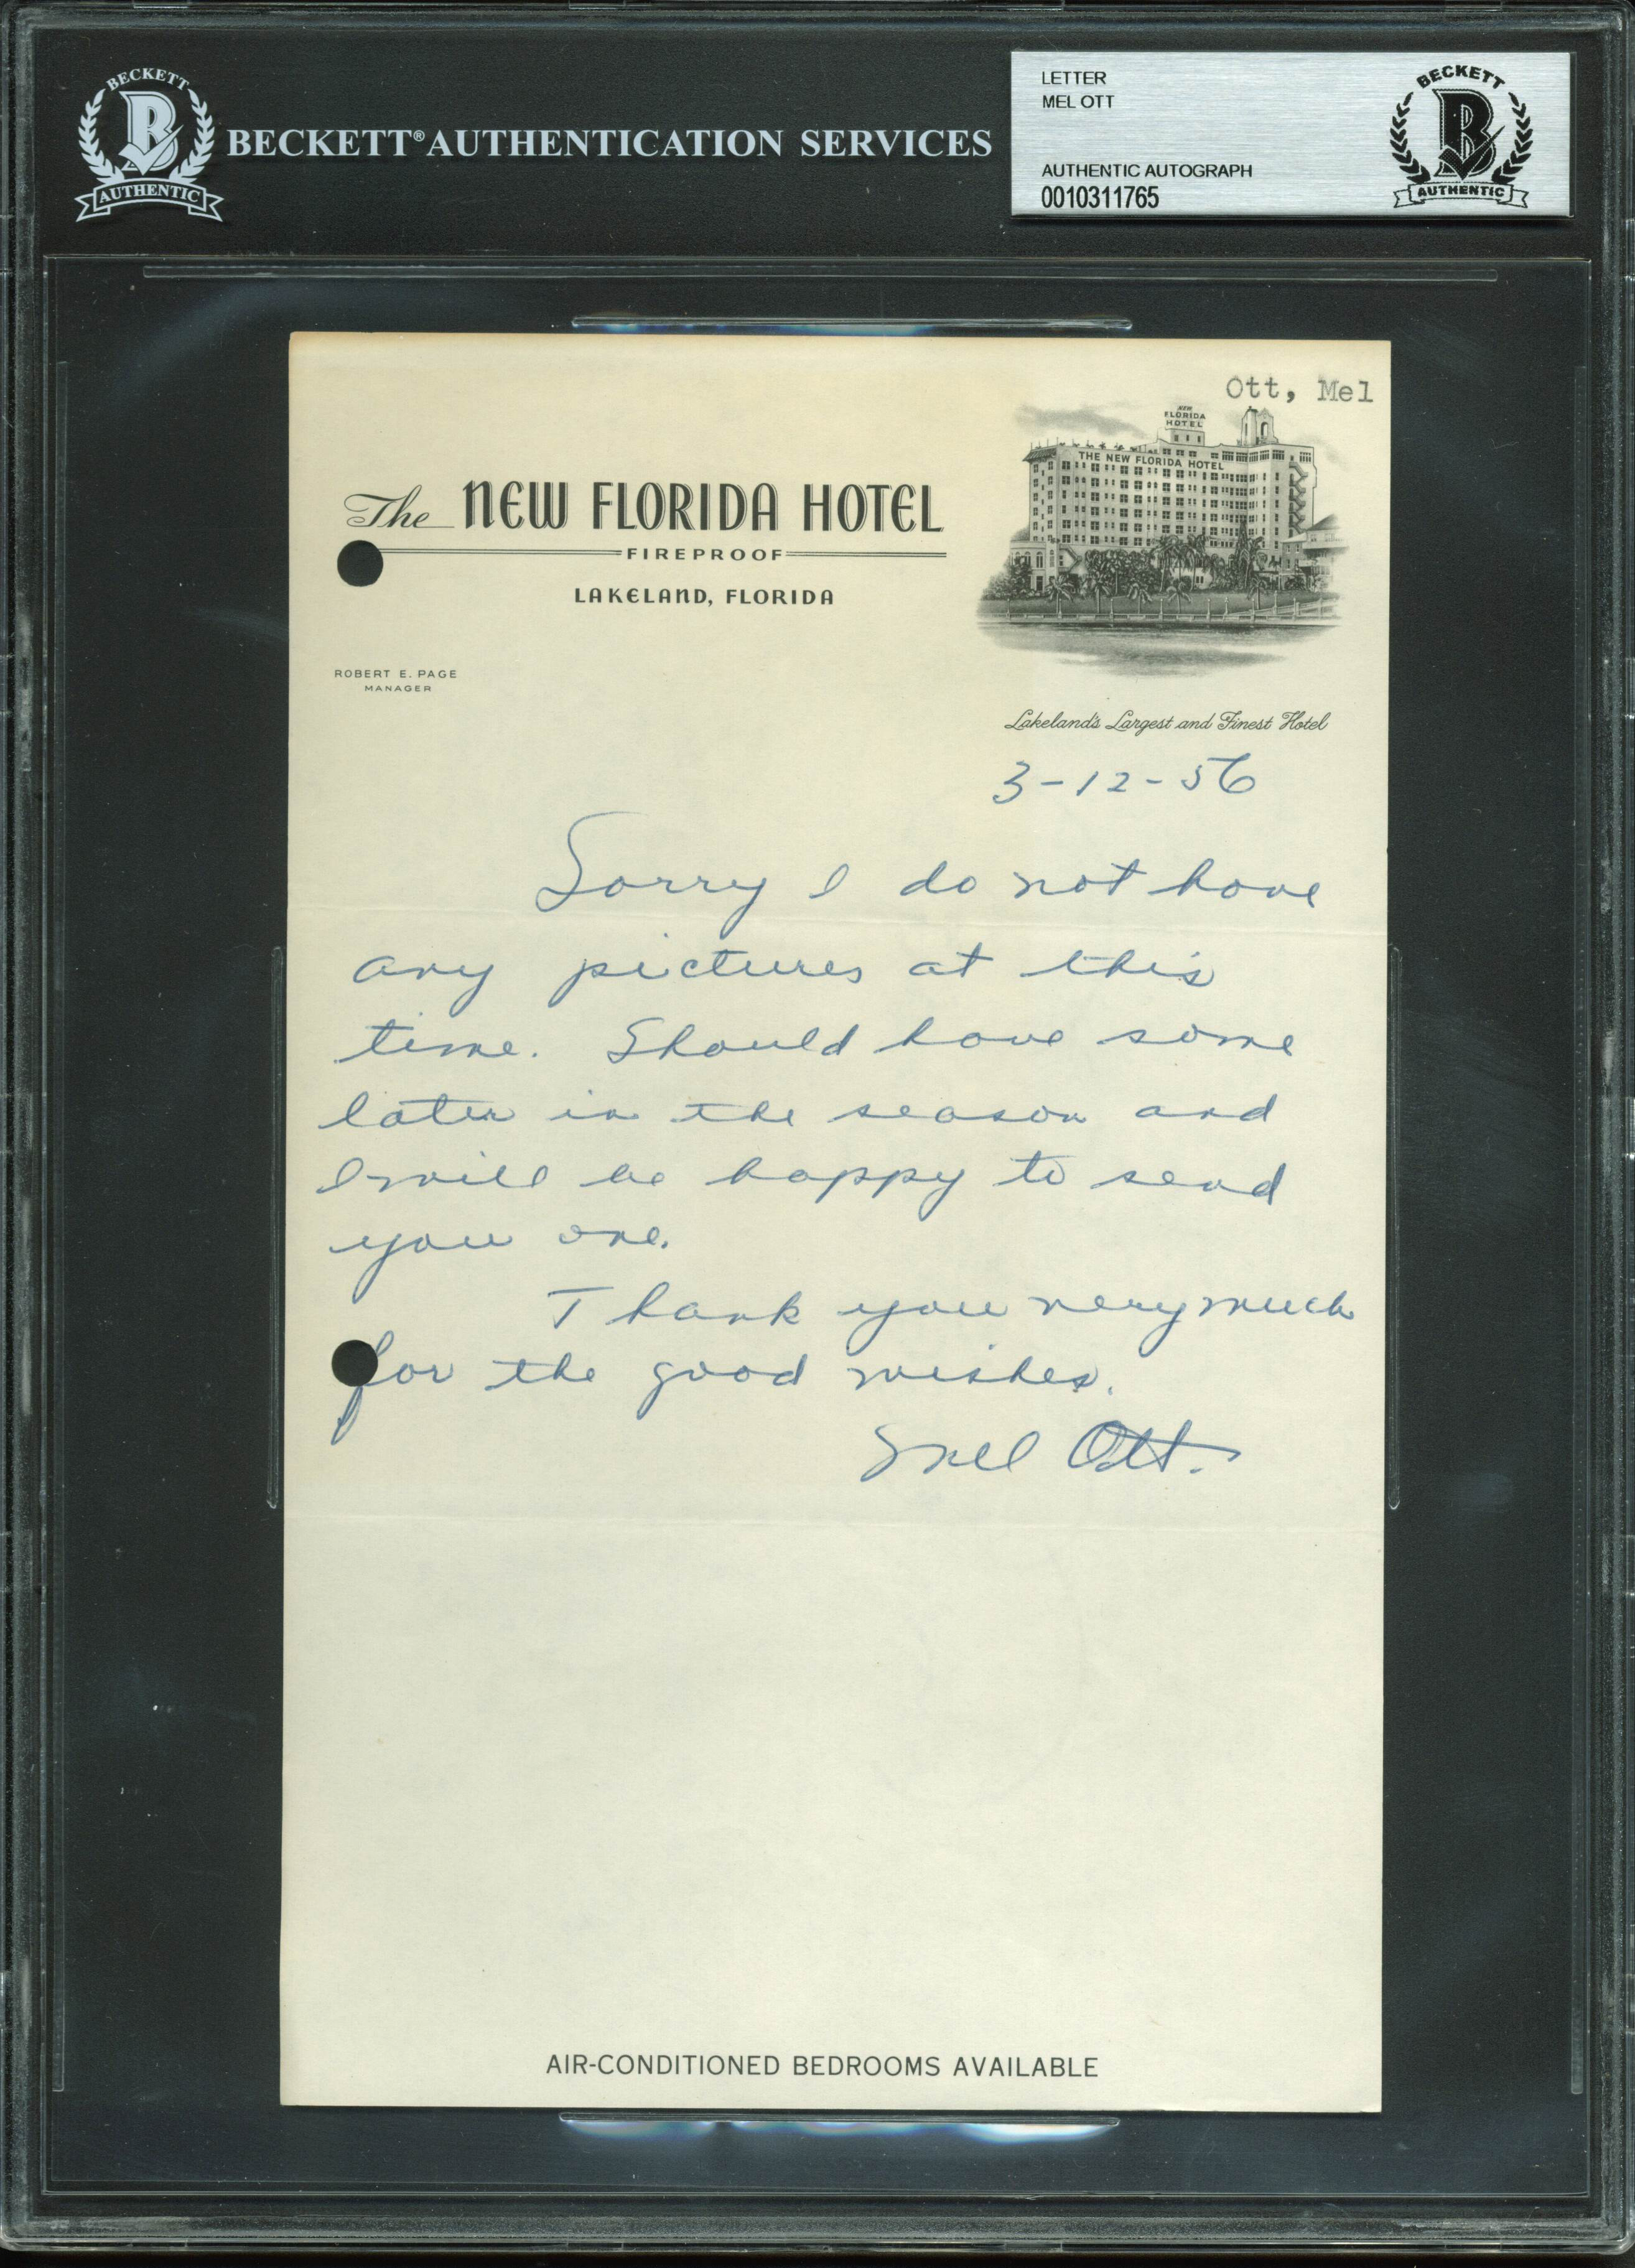 BECKETT
B
AUTHENTIC
BECKETT® AUTHENTICATION SERVICES
LETTER
MEL OTT
AUTHENTIC AUTOGRAPH
0010311765
BECKETT
B
AUTHENTIC
Ott, Mel
NEW
FLORIDA
HOTEL
THE NEW FLORIDA HOTEL
The NEW FLORIDA HOTEL
FIREPROOF
LAKELAND, FLORIDA
ROBERT E. PAGE
MANAGER
Lakeland's Largest and Finest Hotel
3-12-56
Sorry I do not have
any pictures at this
time. Should have some
later in the season and
I will be happy to send
you one.
Thank you very much
for the good wishes.
Mel Ott.
AIR-CONDITIONED BEDROOMS AVAILABLE